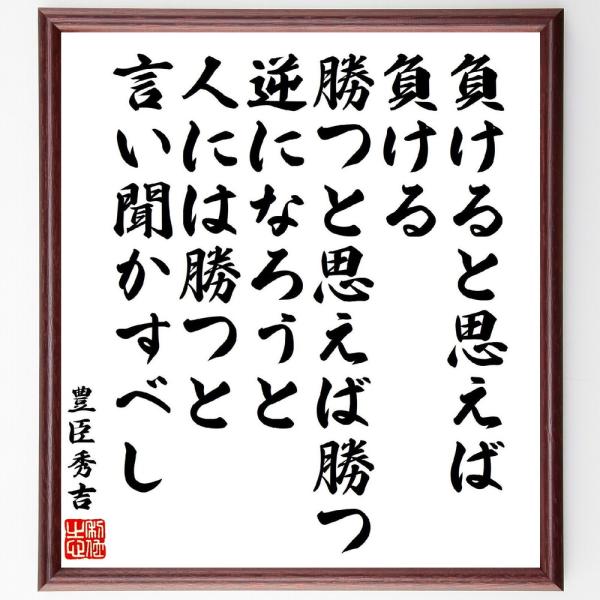 負けると思えば
負ける
勝つと思えば勝つ
逆になろうと
人には勝つと
言い聞かすべし
豊臣秀吉